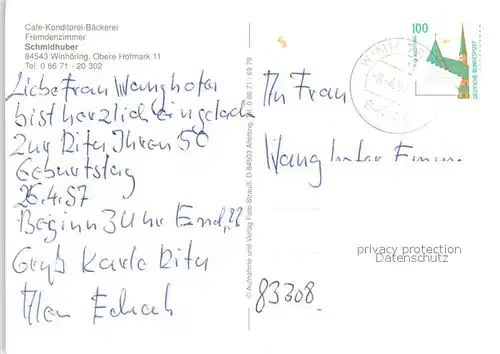 Cafe-Konditorei-Bäckerei
Fremdenzimmer
Schmidhuber
84543 Winhöring, Obere Hofmark 11
Tel. 0 86 71 - 20 302
Liebe Frau Wanghofer
bist herzlich eingelade
Zur Rita Ihren 50
Geburtstag
26.4.97
Beginn 3 Uhr End. ??
Gruß Karle Rita
© Aufnahme und Verlag Foto-Strauß, D 84503 Altötting, 0 86 71 / 69 79
100
DEUTSCHE BUNDESPOST
An Frau
Wanghofer
83308
privacy protection
Datenschutz